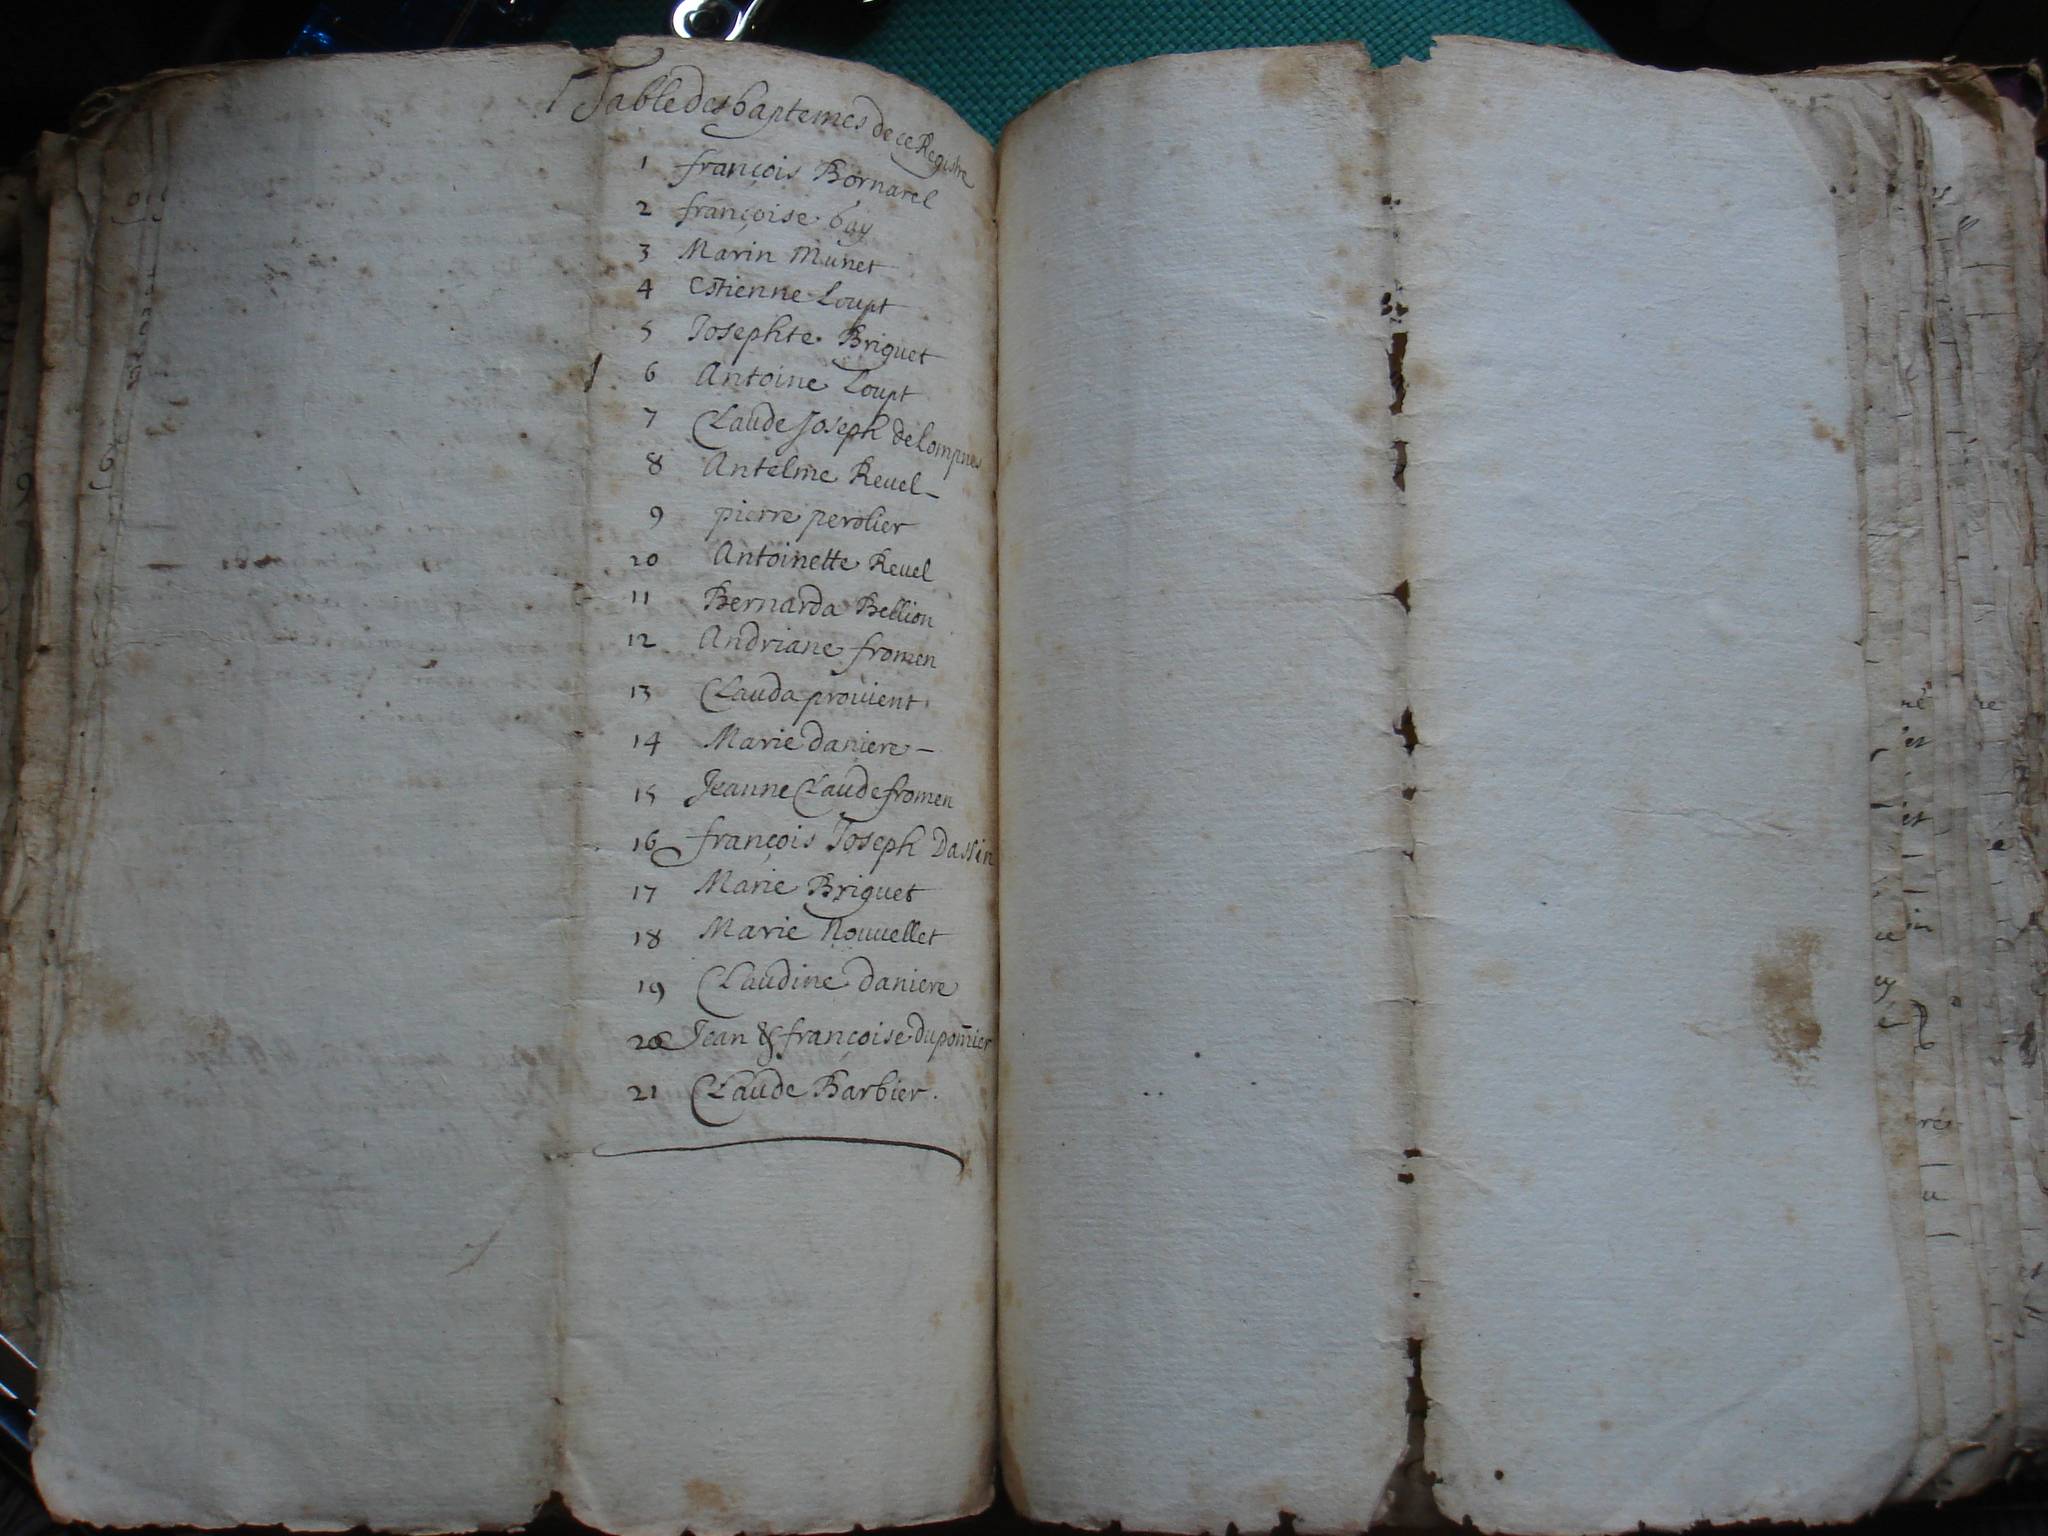 Table des baptemes de ce Registre
1 françois Bornarel
2 françoise bay
3 Marin Munet
4 Estienne Loupt
5 Josephte Briguet
6 Antoine Loupt
7 Claude Joseph de lompnes
8 Antelme Reuel
9 pierre perolier
10 Antoinette Reuel
11 Bernarda Bellion
12 Andriane fromen
13 Clauda prouuent
14 Marie daniere
15 Jeanne Claude fromen
16 françois Joseph Dassin
17 Marie Briguet
18 Marie Nouuellet
19 Claudine daniere
20 Jean & françoise dupom̄ier
21 Claude Barbier.